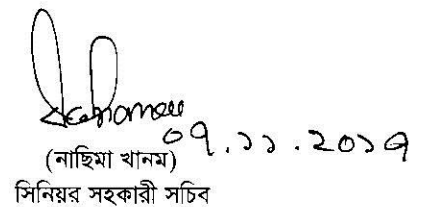 ০৭.১১.২০১৭
(নাছিমা খানম)
সিনিয়র সহকারী সচিব